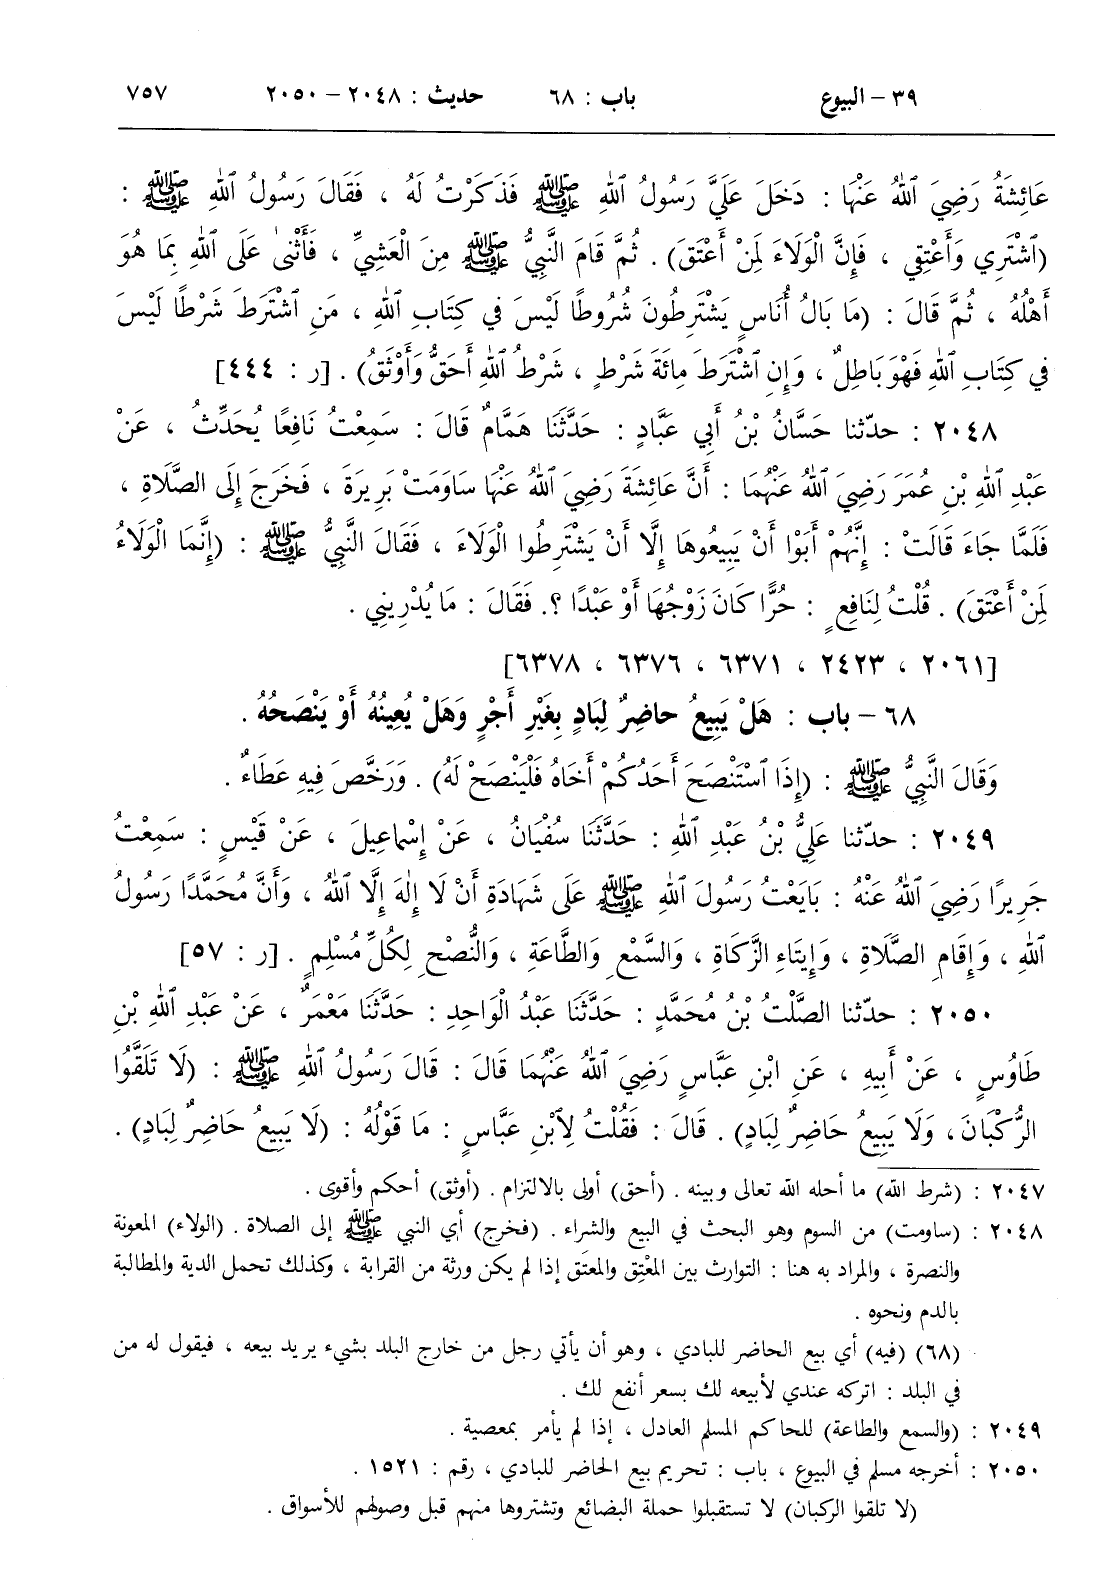 ٣٩ – البيوع باب : ٦٨ حديث : ٢٠٤٨ – ٢٠٥٠ ٧٥٧
عَائِشَةُ رَضِيَ ٱللهُ عَنْهَا : دَخَلَ عَلَيَّ رَسُولُ ٱللهِ ﷺ فَذَكَرْتُ لَهُ ، فَقَالَ رَسُولُ ٱللهِ ﷺ :
(ٱشْتَرِي وَأَعْتِقِي ، فَإِنَّ الْوَلَاءَ لِمَنْ أَعْتَقَ) . ثُمَّ قَامَ النَّبِيُّ ﷺ مِنَ الْعَشِيِّ ، فَأَثْنىٰ عَلَى ٱللهِ بِمَا هُوَ
أَهْلُهُ ، ثُمَّ قَالَ : (مَا بَالُ أُنَاسٍ يَشْتَرِطُونَ شُرُوطًا لَيْسَ في كِتَابِ ٱللهِ ، مَنِ ٱشْتَرَطَ شَرْطًا لَيْسَ
في كِتَابِ ٱللهِ فَهْوَ بَاطِلٌ ، وَإِنِ ٱشْتَرَطَ مِائَةَ شَرْطٍ ، شَرْطُ ٱللهِ أَحَقُّ وَأَوْثَقُ) . [ر : ٤٤٤]
٢٠٤٨ : حدّثنا حَسَّانُ بْنُ أَبِي عَبَّادٍ : حَدَّثَنَا هَمَّامٌ قَالَ : سَمِعْتُ نَافِعًا يُحَدِّثُ ، عَنْ
عَبْدِ ٱللهِ بْنِ عُمَرَ رَضِيَ ٱللهُ عَنْهُمَا : أَنَّ عَائِشَةَ رَضِيَ ٱللهُ عَنْهَا سَاوَمَتْ بَرِيرَةَ ، فَخَرَجَ إِلَى الصَّلَاةِ ،
فَلَمَّا جَاءَ قَالَتْ : إِنَّهُمْ أَبَوْا أَنْ يَبِيعُوهَا إِلَّا أَنْ يَشْتَرِطُوا الْوَلَاءَ ، فَقَالَ النَّبِيُّ ﷺ : (إِنَّمَا الْوَلَاءُ
لِمَنْ أَعْتَقَ) . قُلْتُ لِنَافِعٍ : حُرًّا كَانَ زَوْجُهَا أَوْ عَبْدًا ؟. فَقَالَ : مَا يُدْرِينِي .
[٢٠٦١ ، ٢٤٢٣ ، ٦٣٧١ ، ٦٣٧٦ ، ٦٣٧٨]
٦٨ – باب : هَلْ يَبِيعُ حاضِرٌ لِبَادٍ بِغَيْرِ أَجْرٍ وَهَلْ يُعِينُهُ أَوْ يَنْصَحُهُ .
وَقَالَ النَّبِيُّ ﷺ : (إِذَا ٱسْتَنْصَحَ أَحَدُكُمْ أَخَاهُ فَلْيَنْصَحْ لَهُ) . وَرَخَّصَ فِيهِ عَطَاءٌ .
٢٠٤٩ : حدّثنا عَلِيُّ بْنُ عَبْدِ ٱللهِ : حَدَّثَنَا سُفْيَانُ ، عَنْ إِسْماعِيلَ ، عَنْ قَيْسٍ : سَمِعْتُ
جَرِيرًا رَضِيَ ٱللهُ عَنْهُ : بَايَعْتُ رَسُولَ ٱللهِ ﷺ عَلَى شَهَادَةِ أَنْ لَا إِلٰهَ إِلَّا ٱللهُ ، وَأَنَّ مُحَمَّدًا رَسُولُ
ٱللهِ ، وَإِقَامِ الصَّلَاةِ ، وَإِيتَاءِ الزَّكَاةِ ، وَالسَّمْعِ وَالطَّاعَةِ ، وَالنُّصْحِ لِكُلِّ مُسْلِمٍ . [ر : ٥٧]
٢٠٥٠ : حدّثنا الصَّلْتُ بْنُ مُحَمَّدٍ : حَدَّثَنَا عَبْدُ الْوَاحِدِ : حَدَّثَنَا مَعْمَرٌ ، عَنْ عَبْدِ ٱللهِ بْنِ
طَاوُسٍ ، عَنْ أَبِيهِ ، عَنِ ابْنِ عَبَّاسٍ رَضِيَ ٱللهُ عَنْهُمَا قَالَ : قَالَ رَسُولُ ٱللهِ ﷺ : (لَا تَلَقَّوُا
الرُّكْبَانَ، وَلَا يَبِيعُ حَاضِرٌ لِبَادٍ) . قَالَ : فَقُلْتُ لِٱبْنِ عَبَّاسٍ : ما قَوْلُهُ : (لَا يَبِيعُ حَاضِرٌ لِبَادٍ) .
٢٠٤٧ : (شرط الله) ما أحله الله تعالى وبينه . (أحق) أولى بالالتزام . (أوثق) أحكم وأقوى .
٢٠٤٨ : (ساومت) من السوم وهو البحث في البيع والشراء . (فخرج) أي النبي ﷺ إلى الصلاة . (الولاء) المعونة
والنصرة ، والمراد به هنا : التوارث بين المعْتِق والمعتَق إذا لم يكن ورثة من القرابة ، وكذلك تحمل الدية والمطالبة
بالدم ونحوه .
(٦٨) (فيه) أي بيع الحاضر للبادي ، وهو أن يأتي رجل من خارج البلد بشيء يريد بيعه ، فيقول له من
في البلد : اتركه عندي لأبيعه لك بسعر أنفع لك .
٢٠٤٩ : (والسمع والطاعة) للحاكم المسلم العادل ، إذا لم يأمر بمعصية .
٢٠٥٠ : أخرجه مسلم في البيوع ، باب : تحريم بيع الحاضر للبادي ، رقم : ١٥٢١ .
(لا تلقوا الركبان) لا تستقبلوا حملة البضائع وتشتروها منهم قبل وصولهم للأسواق .